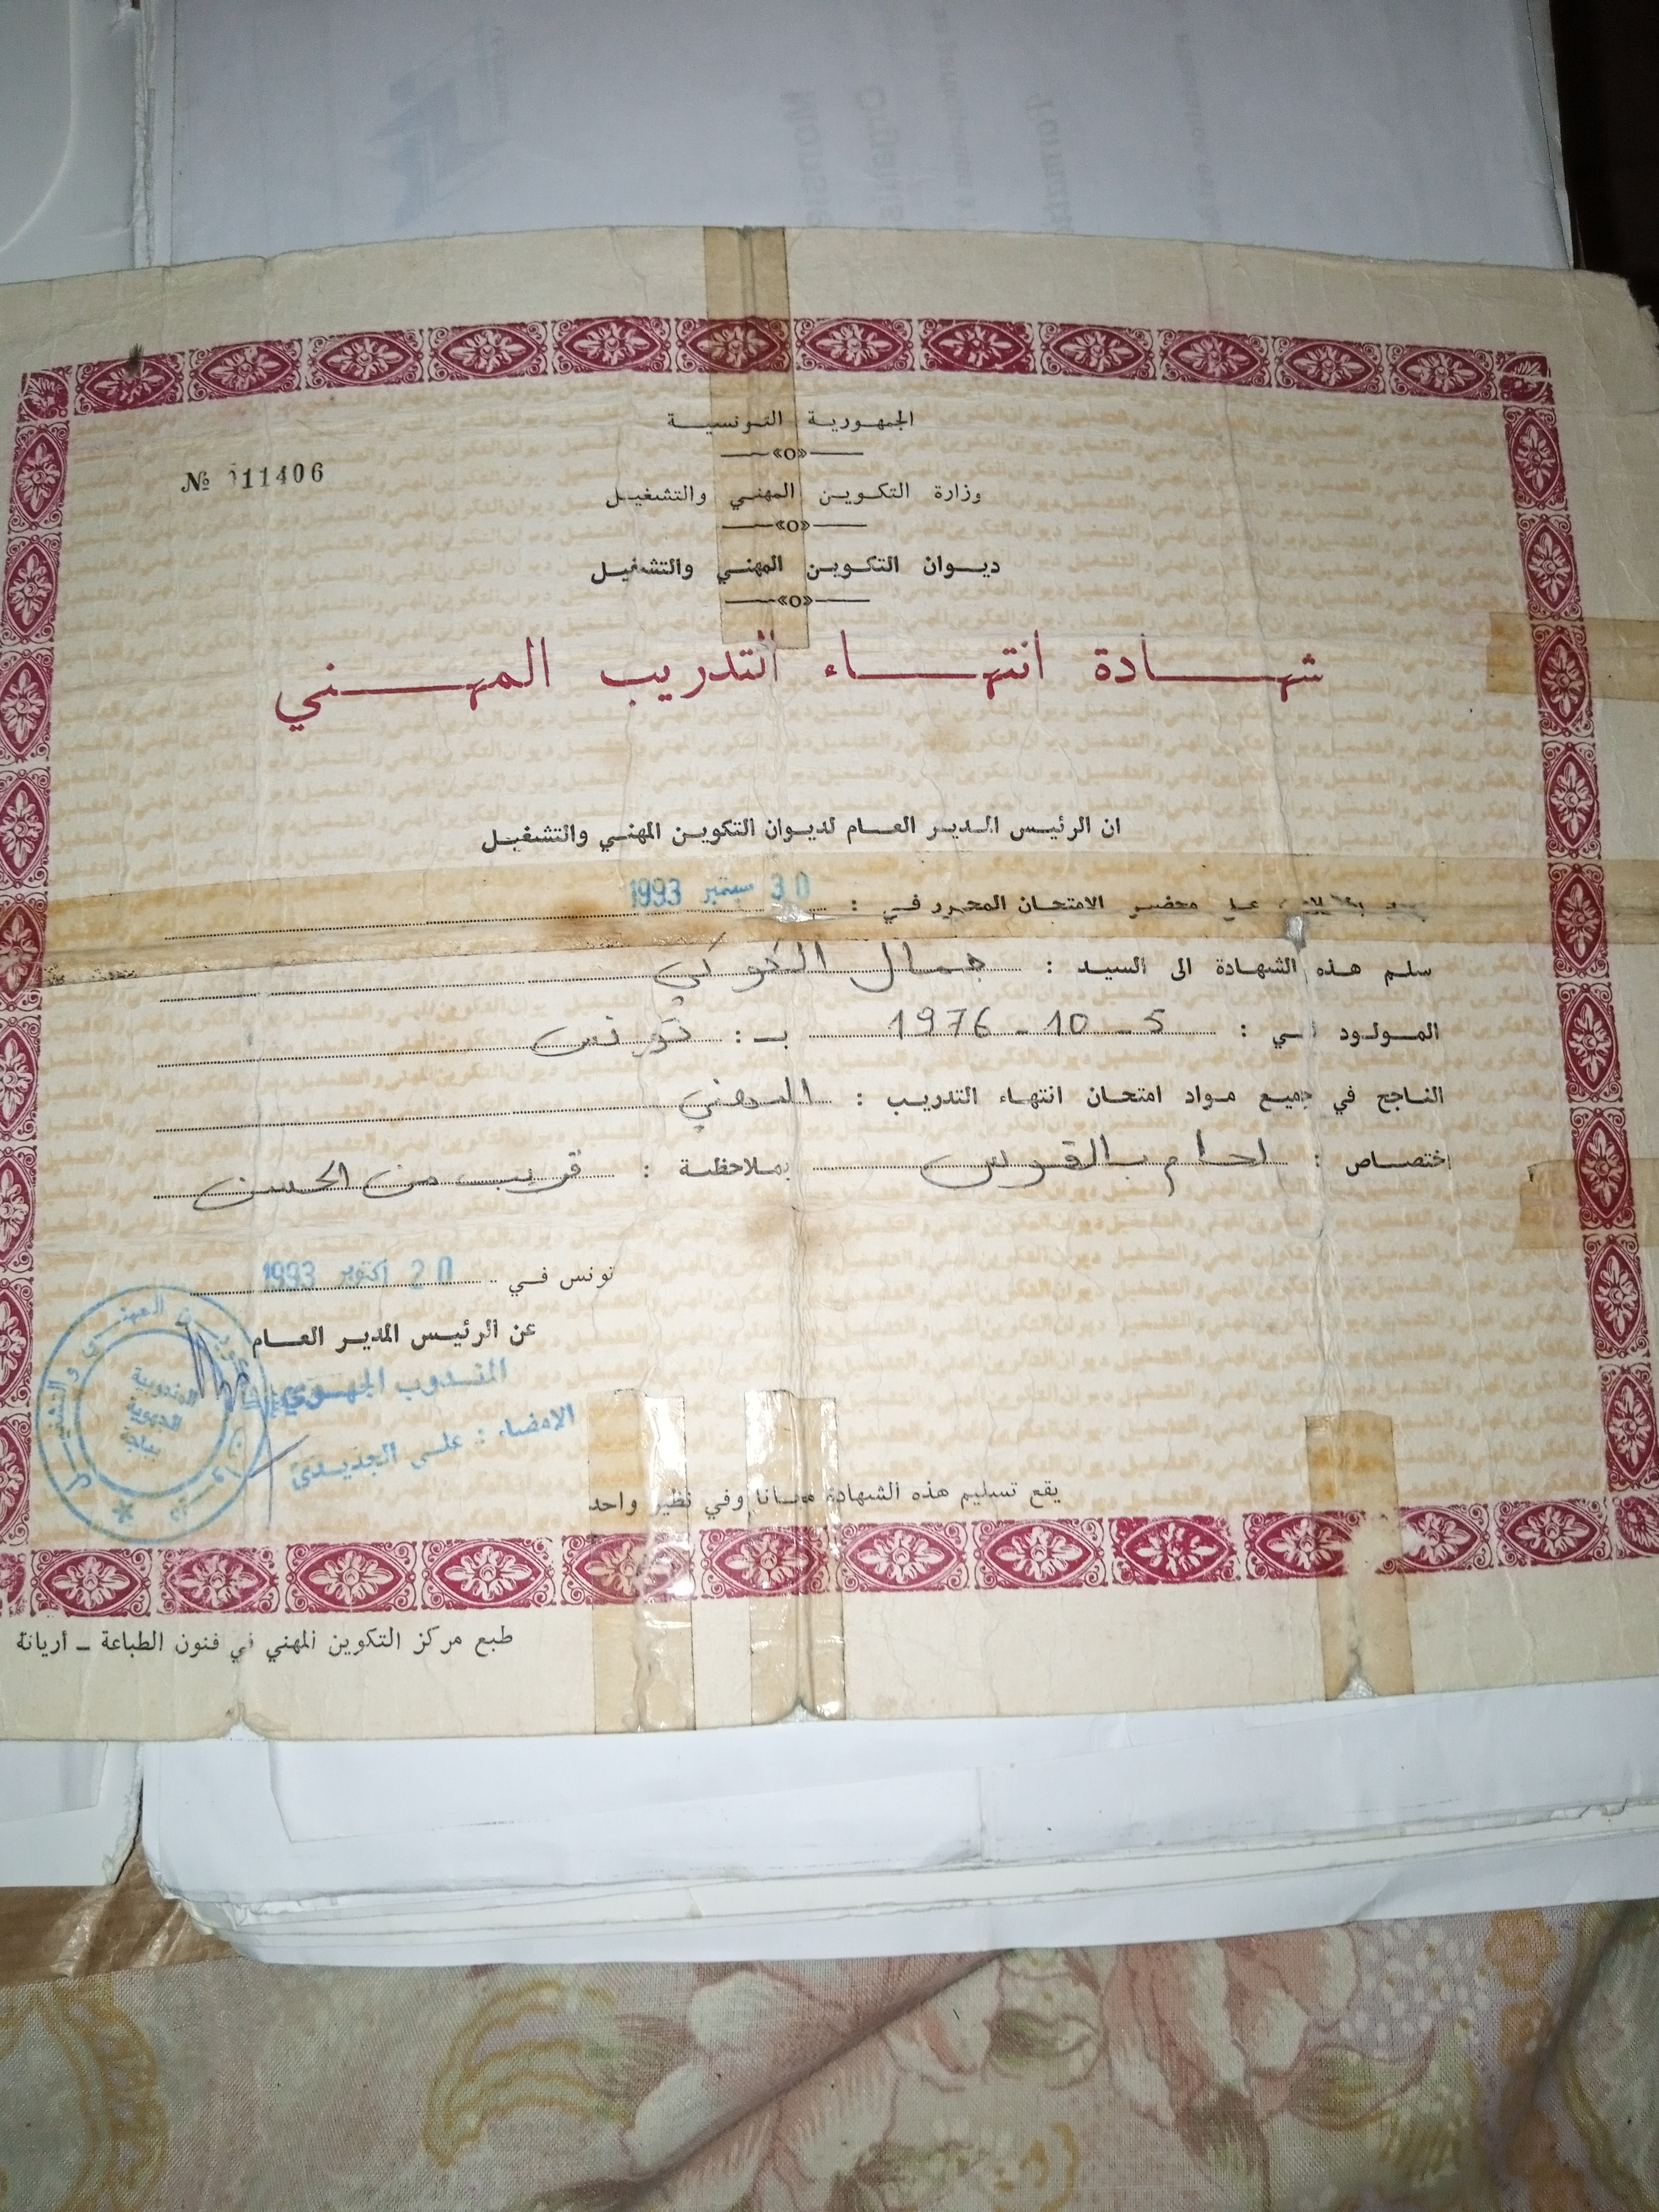 الجمهورية التونسية
№ 11406
وزارة التكوين المهني والتشغيل
ديوان التكوين المهني والتشغيل
شهادة انتهاء التدريب المهني
ان الرئيس المدير العام لديوان التكوين المهني والتشغيل
على محضر الامتحان المحرر في : 30 سبتمبر 1993
سلم هذه الشهادة الى السيد : جمال الكوكي
المولود في : 5 - 10 - 1976 بـ : تونس
الناجح في جميع مواد امتحان انتهاء التدريب : المهني
اختصاص : لحام بالقوس بملاحظة : قريب من الحسن
تونس في 20 أكتوبر 1993
عن الرئيس المدير العام
المندوب الجهوي
الامضاء : علي الجديدي
المندوبية
الجهوية
بباجة
يقع تسليم هذه الشهادة مجانا وفي نظير واحد
طبع مركز التكوين المهني في فنون الطباعة ـ أريانة